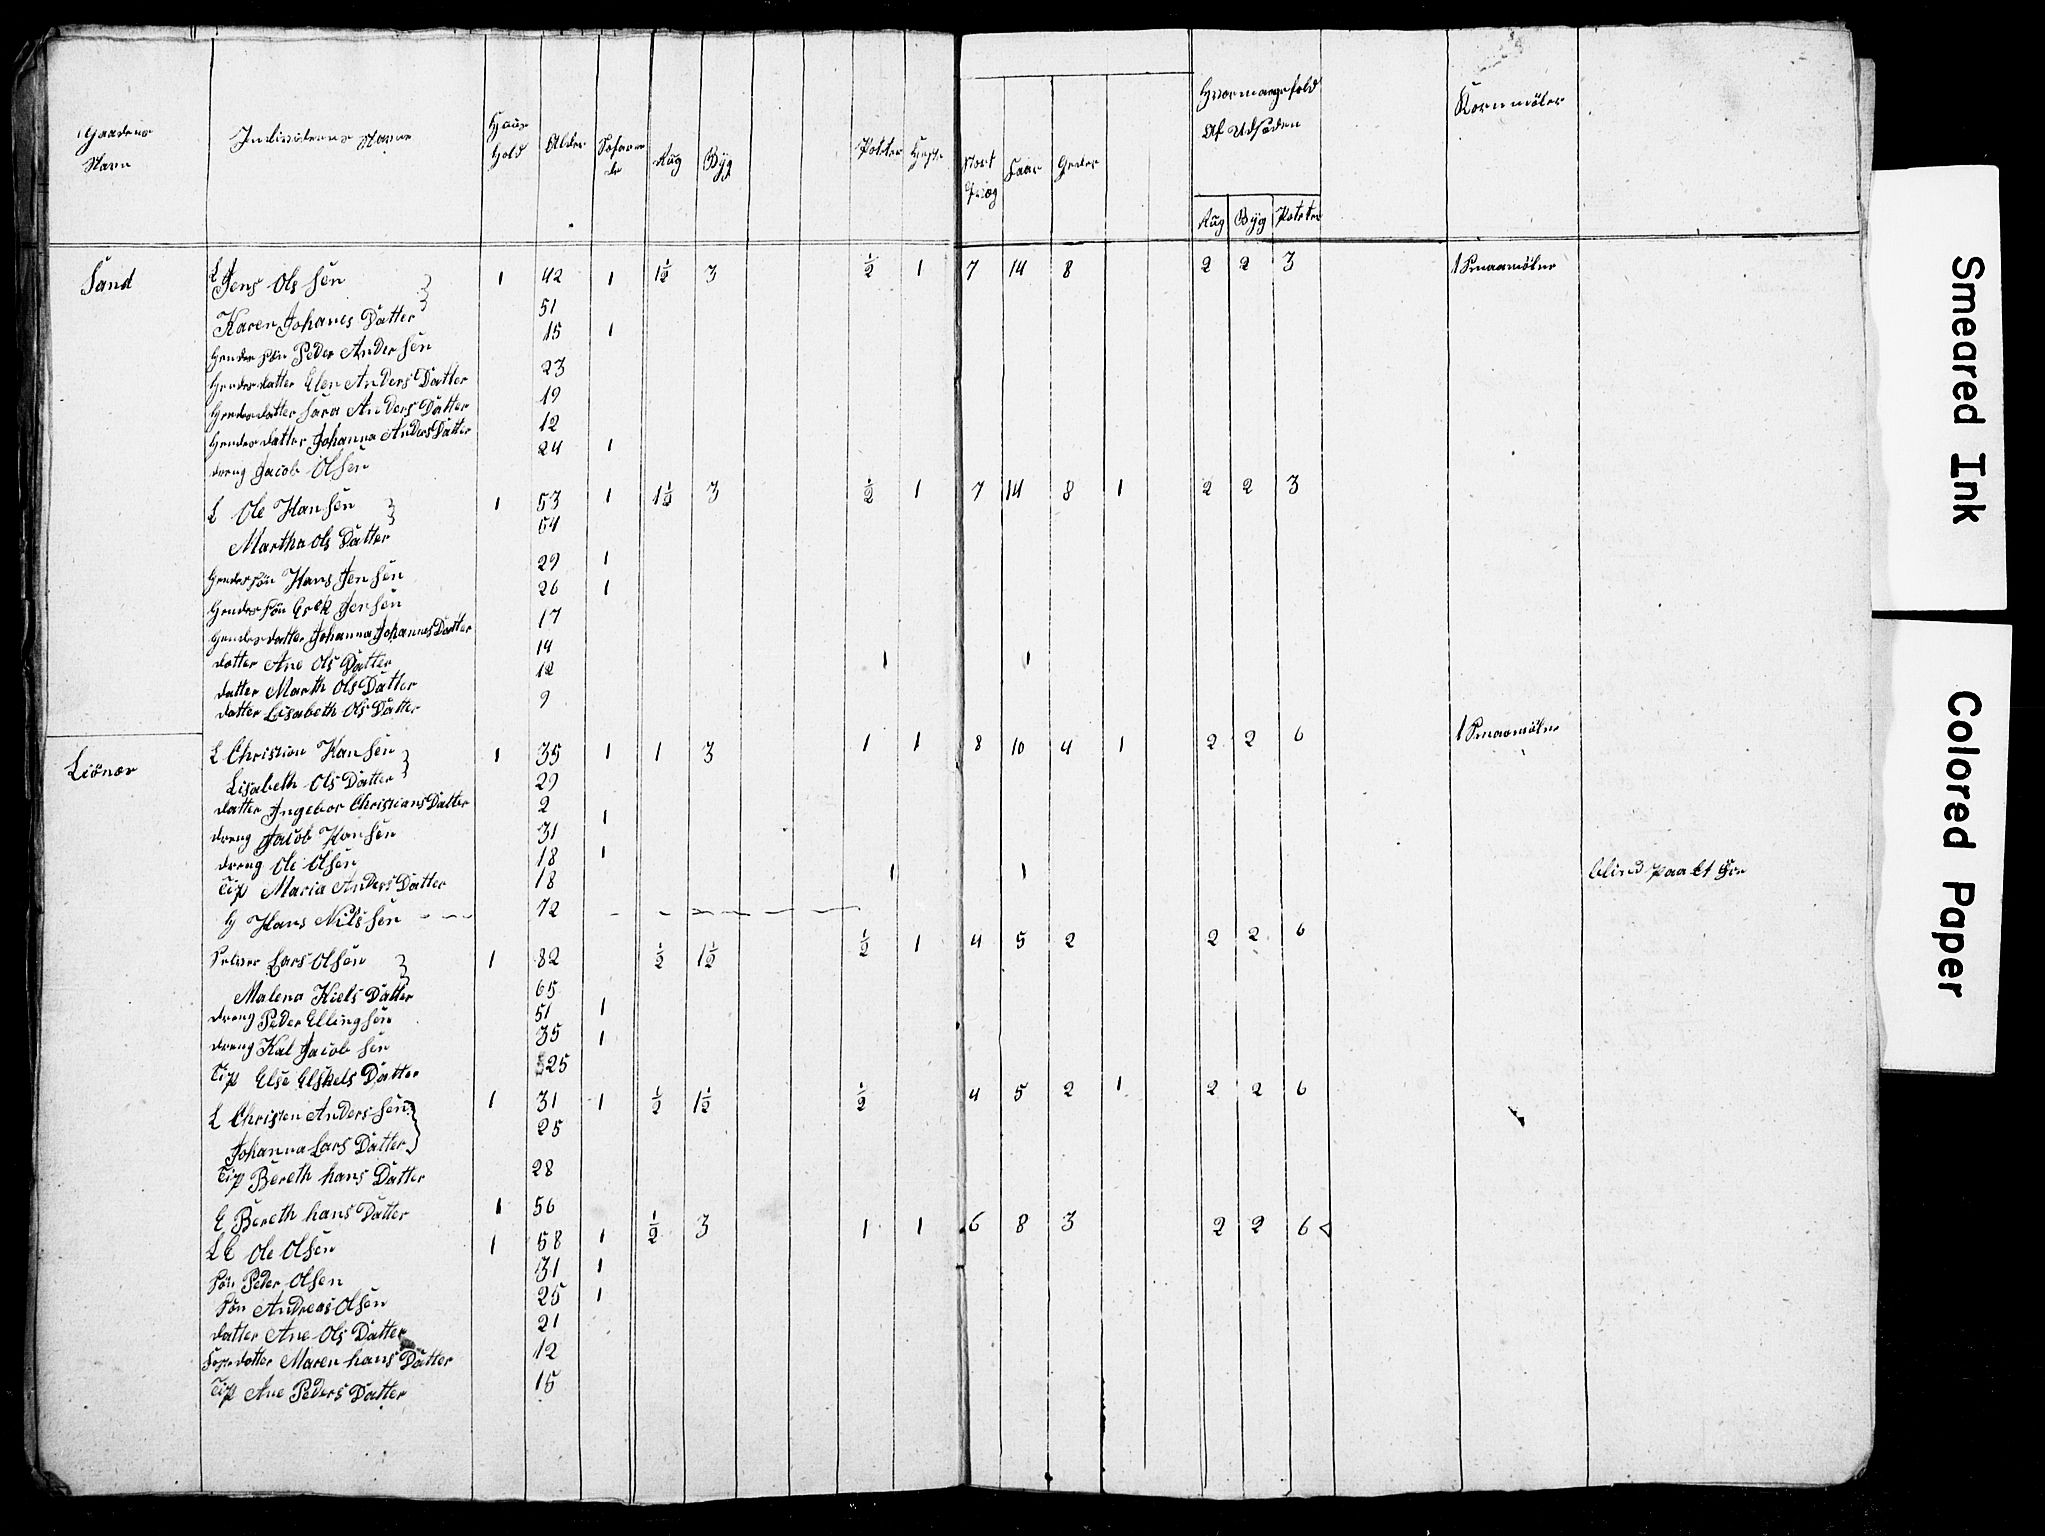 Gaardens Navn
Individernes Navne
Huus hold
Alder
Søfarende
Rug
Byg
Poteter
Heste
Stort Qvæg
Faar
Geder
Hvormangefold Af Udsæden
Rug Byg Poteter
Kornmøler
Sand
L Jens Olsen 1 42 1 1½ 3 ½ 1 7 14 8 2 2 3 1 Smaamølne
Karen Johanes Datter 51
Hendes søn Peder Andersen 15 1
Hendes datter Elen Anders Datter 23
Hendes datter Sara Anders Datter 19
Hendes datter Johanna Anders Datter 12
dreng Jacob Olsen 24 1
L Ole Hansen 1 53 1 1½ 3 ½ 1 7 14 8 1 2 2 3
Martha Ols Datter 54
Hendes søn Hans Jensen 29 1
Hendes søn Erek Jensen 26 1
Hendes datter Johanna Johannes Datter 17
datter Ane Ols Datter 14 1 1
datter Marth Ols Datter 12
datter Lisabeth Ols Datter 9
Liønær
L Christian Hansen 1 35 1 1 3 1 1 8 10 4 1 2 2 6 1 Smaamølne
Lisabeth Ols Datter 29
datter Ingebor Christians Datter 2
dreng Jacob Hansen 31 1
dreng Ole Olsen 18 1
Tip Maria Anders Datter 18 1 1
H Hans Nilssen 72 blind paa et Øie
Lars Olsen 1 82 ½ 1½ ½ 1 4 5 2 2 2 6
Malena Kiels Datter 65
dreng Peder Ellingsen 51 1
dreng Kal Jacobsen 35 1
Tip Else Elskels Datter 25
L Christen Anderssen 1 31 1 ½ 1½ ½ 4 5 2 1 2 2 6
Johanna Lars Datter 25
Tip Bereth hans Datter 28
E Bereth hans Datter 1 56
L E Ole Olsen 1 58 1 ½ 3 1 1 6 8 3 2 2 6
søn Peder Olsen 31 1
søn Andreas Olsen 25 1
datter Ane Ols Datter 21
datter Maren hans Datter 12
Tip Ane Peders Datter 15
Smeared Ink
Colored Paper